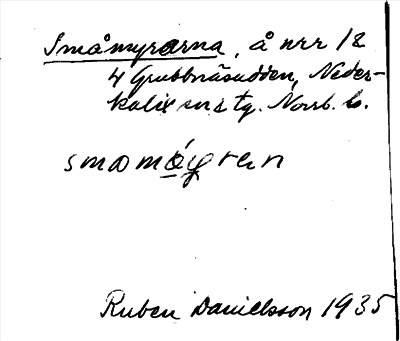 Småmyrarna, å nrr 12
4 Grubbnäsudden, Neder-
kalix sn s tg. Norrb. l.
smamǫ́yran
Ruben Danielsson 1935